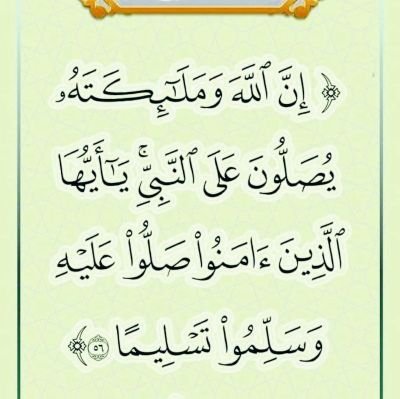 ﴿ إِنَّ ٱللَّهَ وَمَلَـٰٓئِكَتَهُۥ
يُصَلُّونَ عَلَى ٱلنَّبِىِّۚ يَـٰٓأَيُّهَا
ٱلَّذِينَ ءَامَنُوا۟ صَلُّوا۟ عَلَيْهِ
وَسَلِّمُوا۟ تَسْلِيمًا ٥٦ ﴾